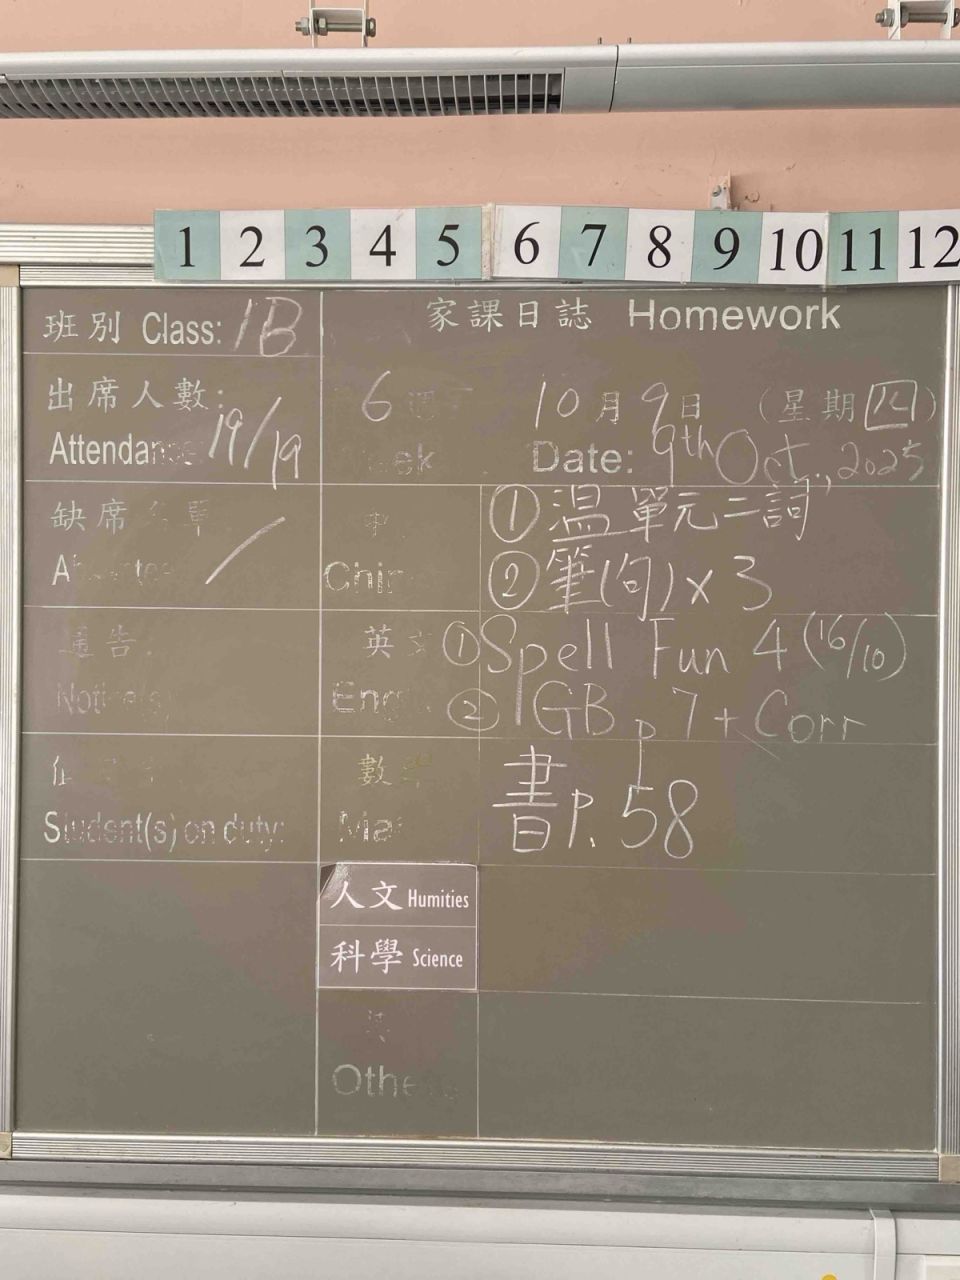 1 2 3 4 5 6 7 8 9 10 11 12
班別 Class: 1B
家課日誌 Homework
出席人數:
Attendance 19/19
6 週
Week
10月9日 (星期四)
Date: 9th Oct., 2025
缺席名單
/
中
Chin
①温單元二詞
②筆(句)x3
通告
Notice(s)
英文
Eng
①Spell Fun 4 (16/10)
②GB p7 + Corr
Student(s) on duty:
數學
Ma
書P. 58
人文 Humities
科學 Science
其
Othe